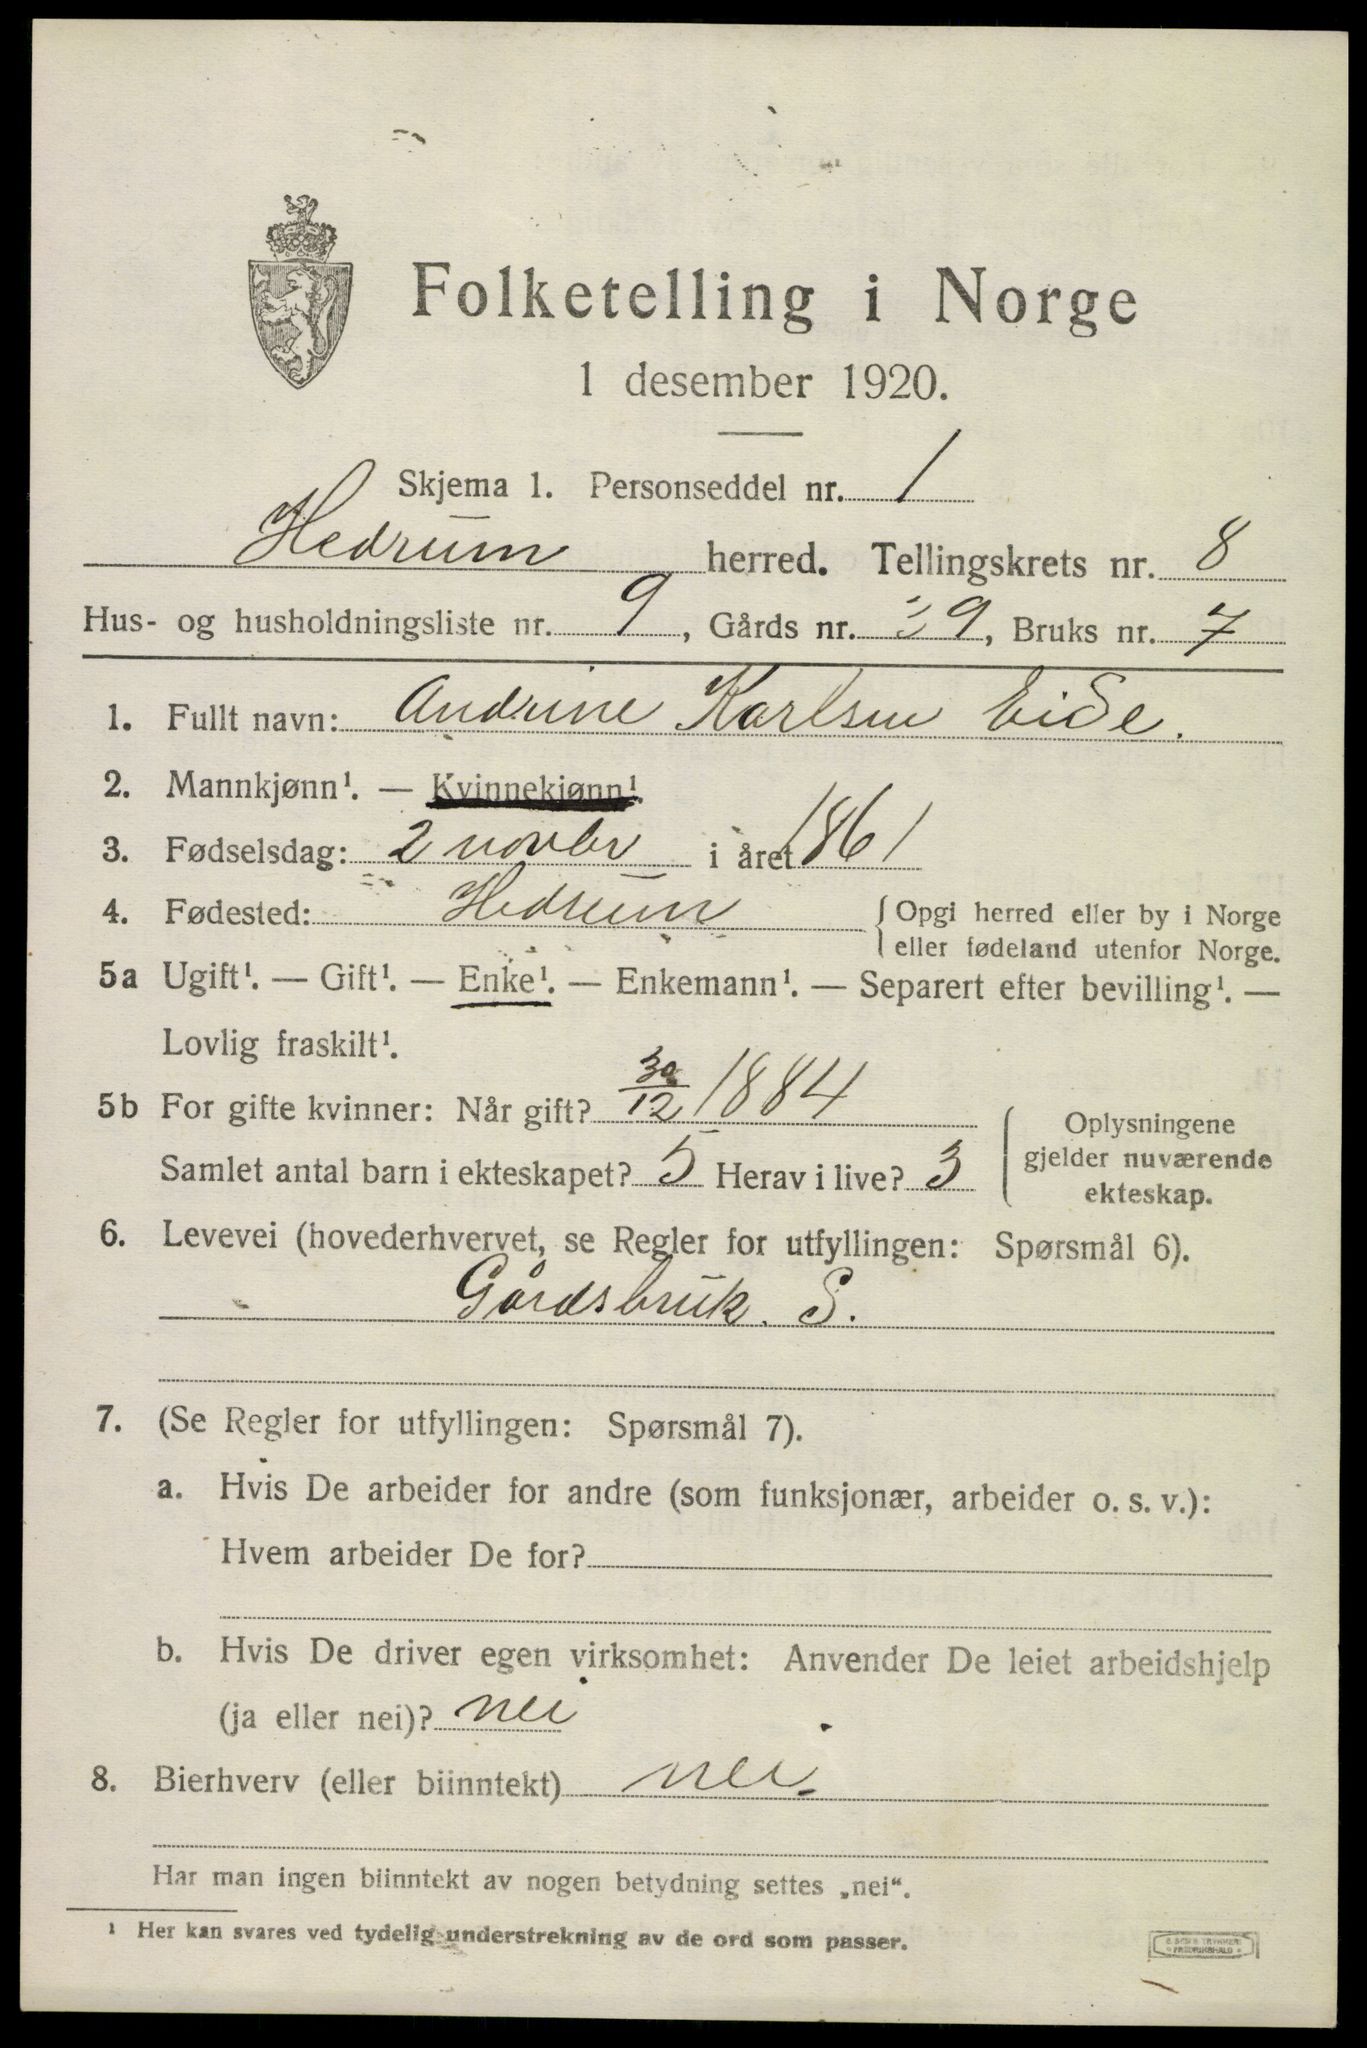 Folketelling i Norge
1 desember 1920.
Skjema 1. Personseddel nr. 1
Hedrum herred. Tellingskrets nr. 8
Hus- og husholdningsliste nr. 9, Gårds nr. 39, Bruks nr. 7
1. Fullt navn: Andrine Karlsen Eide.
2. Mannkjønn¹. — Kvinnekjønn¹.
3. Fødselsdag: 2 novbr i året 1861
4. Fødested: Hedrum {Opgi herred eller by i Norge
eller fødeland utenfor Norge.
5a Ugift¹. — Gift¹. — Enke¹. — Enkemann¹. — Separert efter bevilling¹. —
Lovlig fraskilt¹.
5b For gifte kvinner: Når gift? 30/12 1884
Samlet antal barn i ekteskapet? 5 Herav i live? 3
Oplysningene
gjelder nuværende
ekteskap.
6. Levevei (hovederhvervet, se Regler for utfyllingen: Spørsmål 6).
Gårdsbruk. S.
7. (Se Regler for utfyllingen: Spørsmål 7).
a. Hvis De arbeider for andre (som funksjonær, arbeider o. s. v.):
Hvem arbeider De for?
b. Hvis De driver egen virksomhet: Anvender De leiet arbeidshjelp
(ja eller nei)? nei
8. Bierhverv (eller biinntekt) nei.
Har man ingen biinntekt av nogen betydning settes „nei".
¹ Her kan svares ved tydelig understrekning av de ord som passer.